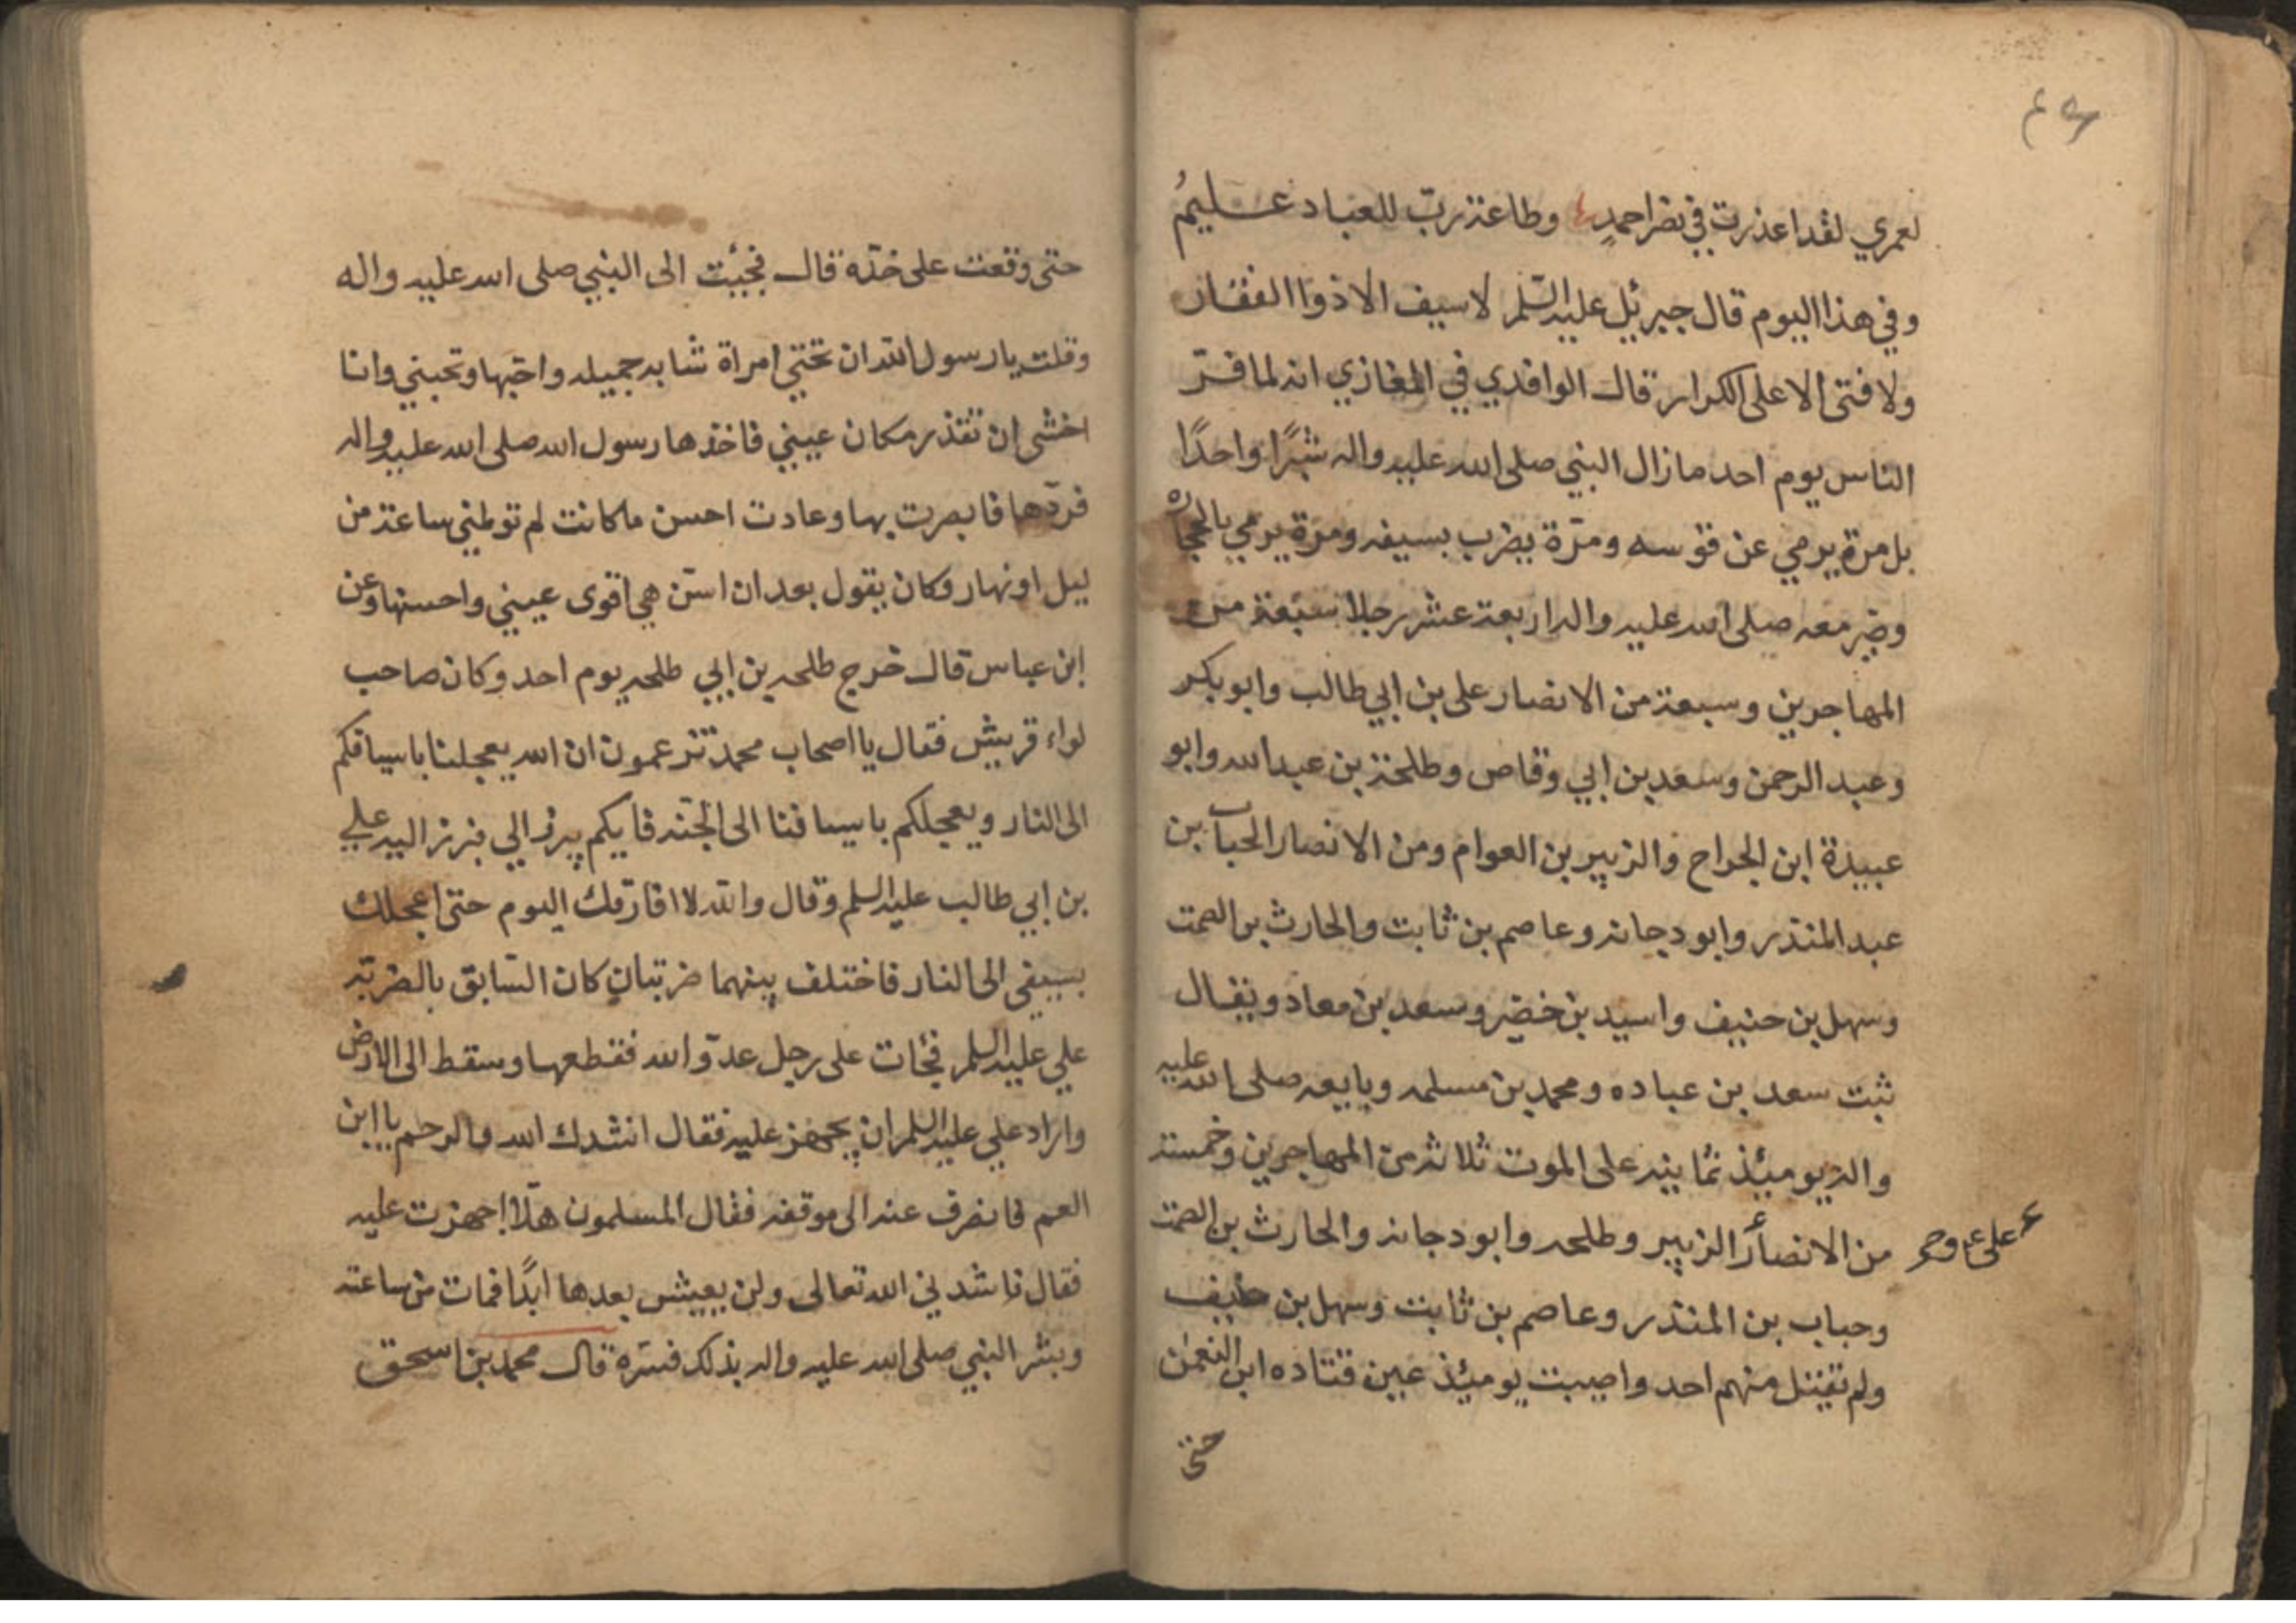 لعمري لقد اعذرت في نصر احمدٍ وطاعة ربّ للعباد عليمُ
وفي هذا اليوم قال جبرئيل عليه السّلم لا سيف الا ذوا الفقار
ولا فتى الا على الكرار قال الواقدي في المغازي انه لما فرّ
الناس يوم احد ما زال النبي صلى الله عليه واله شبرًا واحدًا
بل مرة يرمي عن قوسه ومرّة يضرب بسيفه ومرة يرمي بالحجاره
وصبر معه صلى الله عليه واله اربعة عشر رجلا سبعة من
المهاجرين وسبعة من الانصار على بن ابي طالب وابو بكر
وعبد الرحمن وسعد بن ابي وقاص وطلحة بن عبد الله وابو
عبيدة ابن الجراح والزبير بن العوام ومن الانصار الحباب بن
عبد المنذر وابو دجانه وعاصم بن ثابت والحارث بن الصمت
وسهل بن حنيف واسيد بن خضير وسعد بن معاد ويقال
ثبت سعد بن عباده ومحمد بن مسلمه وبايعه صلى الله عليه
واله يومئذ ثمانية على الموت ثلاثة من المهاجرين وخمسة
من الانصار الزبير وطلحه وابو دجانه والحارث بن الصمت
على ع
وحباب بن المنذر وعاصم بن ثابت وسهل بن حنيف
ولم تقتل منهم احد واصيبت يومئذ عين قتاده ابن النعمن
حتى
حتى وقعت على خدّه قال فجيئت الى النبي صلى الله عليه واله
وقلت يا رسول الله ان تحتي امراة شابه جميله واحبّها وتحبني وانا
اخشى ان تقذر مكان عيني فاخذها رسول الله صلى الله عليه واله
فردّها فابصرت بها وعادت احسن ما كانت لم تولمني ساعة من
ليل او نهار وكان يقول بعد ان اسّن هي اقوى عيني واحسنها وعن
ابن عباس قال خرج طلحه بن ابي طلحه يوم احد وكان صاحب
لواء قريش فقال يا اصحاب محمد تزعمون ان الله يعجلنا باسيافكم
الى النار ويعجلكم باسيافنا الى الجنه فايكم يبرز الي فبرز اليه علي
بن ابي طالب عليه السلم وقال والله لا افارقك اليوم حتى اعجلك
بسيفى الى النار فاختلف بينهما ضربتان كان السّابق بالضربة
علي عليه السلم فجٔات على رجل عدوّ الله فقطعها وسقط الى الارض
واراد علي عليه السلم ان يجهز عليه فقال انشدك الله والرحم يا ابن
العم فانصرف عنه الى موقفه فقال المسلمون هلّا اجهزت عليه
فقال ناشدني الله تعالى ولن يعيش بعدها ابدًا فمات من ساعته
وبشر النبي صلى الله عليه واله بذلك فسرّه قال محمد بن اسحق